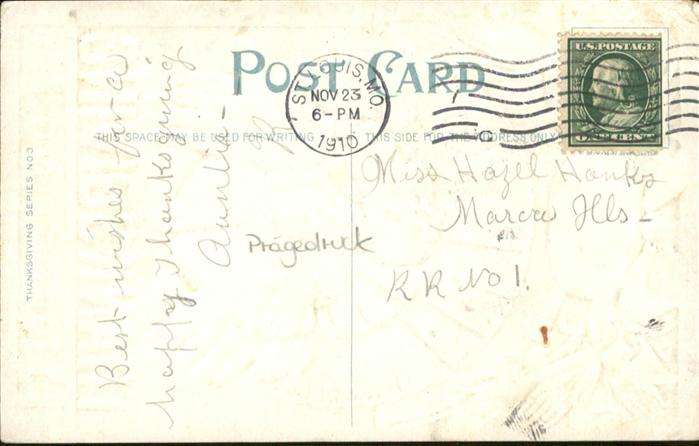 POST CARD
ST. LOUIS, MO.
NOV 23
6-PM
1910
U.S. POSTAGE
ONE CENT
THIS SPACE MAY BE USED FOR WRITING
THIS SIDE FOR THE ADDRESS ONLY
THANKSGIVING SERIES NO 3
Best wishes for a
happy Thanksgiving
Auntie-
Prägedruck
Miss Hazel Hanks
Ills-
RR No 1.